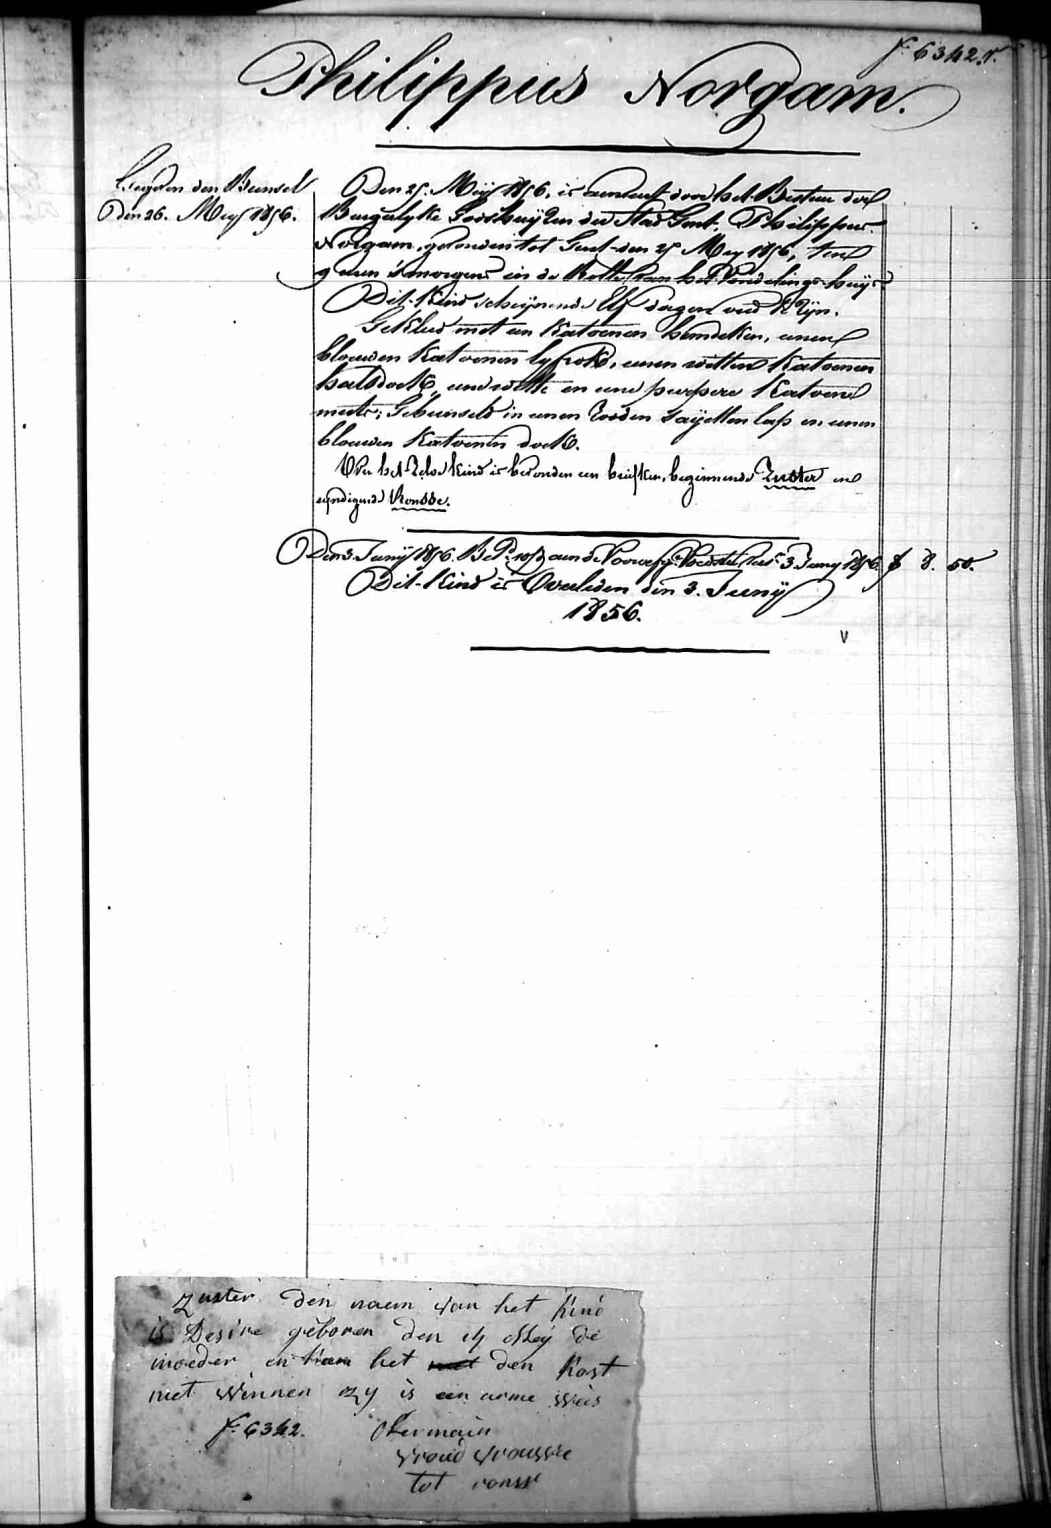 f. 6342. V.
Philippus Norgam.
den Bunsel
Den 26. Mey 1856.
Den 25. Meÿ 1856, is aenveerd door het Bestuer der
Burgerlyke Godshuÿzen der Stad Gent, Philippus
Norgam, gevonden tot Gent den 25 Mey 1856, ten
9 uren 's morgens in de Rolle van het Vondelings-huys
Dit Kind schÿnende Elf dagen oud te zÿn.
Gekleed met een Katoenen hemdeken, eenen
blauwen Katoenen lyfrok, eenen witten Katoenen
halsdoek, eene witte en eene peirpere Katoene
muts; Gebunseld in eenen rooden Saÿetten lap en eenen
blauwen Katoenen doek.
Op het zelve Kind is bevonden een briefken, beginnende Zuster en
eyndigende Ronsse.
Den 3. Junÿ 1856. Bet. aan de Voedster tot 3 Juny 1856 f 8. 50.
Dit Kind is Overleden den 3. Junÿ
1856.
V
Zuster den naem van het kind
is Desire geboren den 14 Meÿ de
moeder en kan het met den kost
niet winnen zy is een arme wees
f. 6342. Germain
vroud vrousse
tot ronss